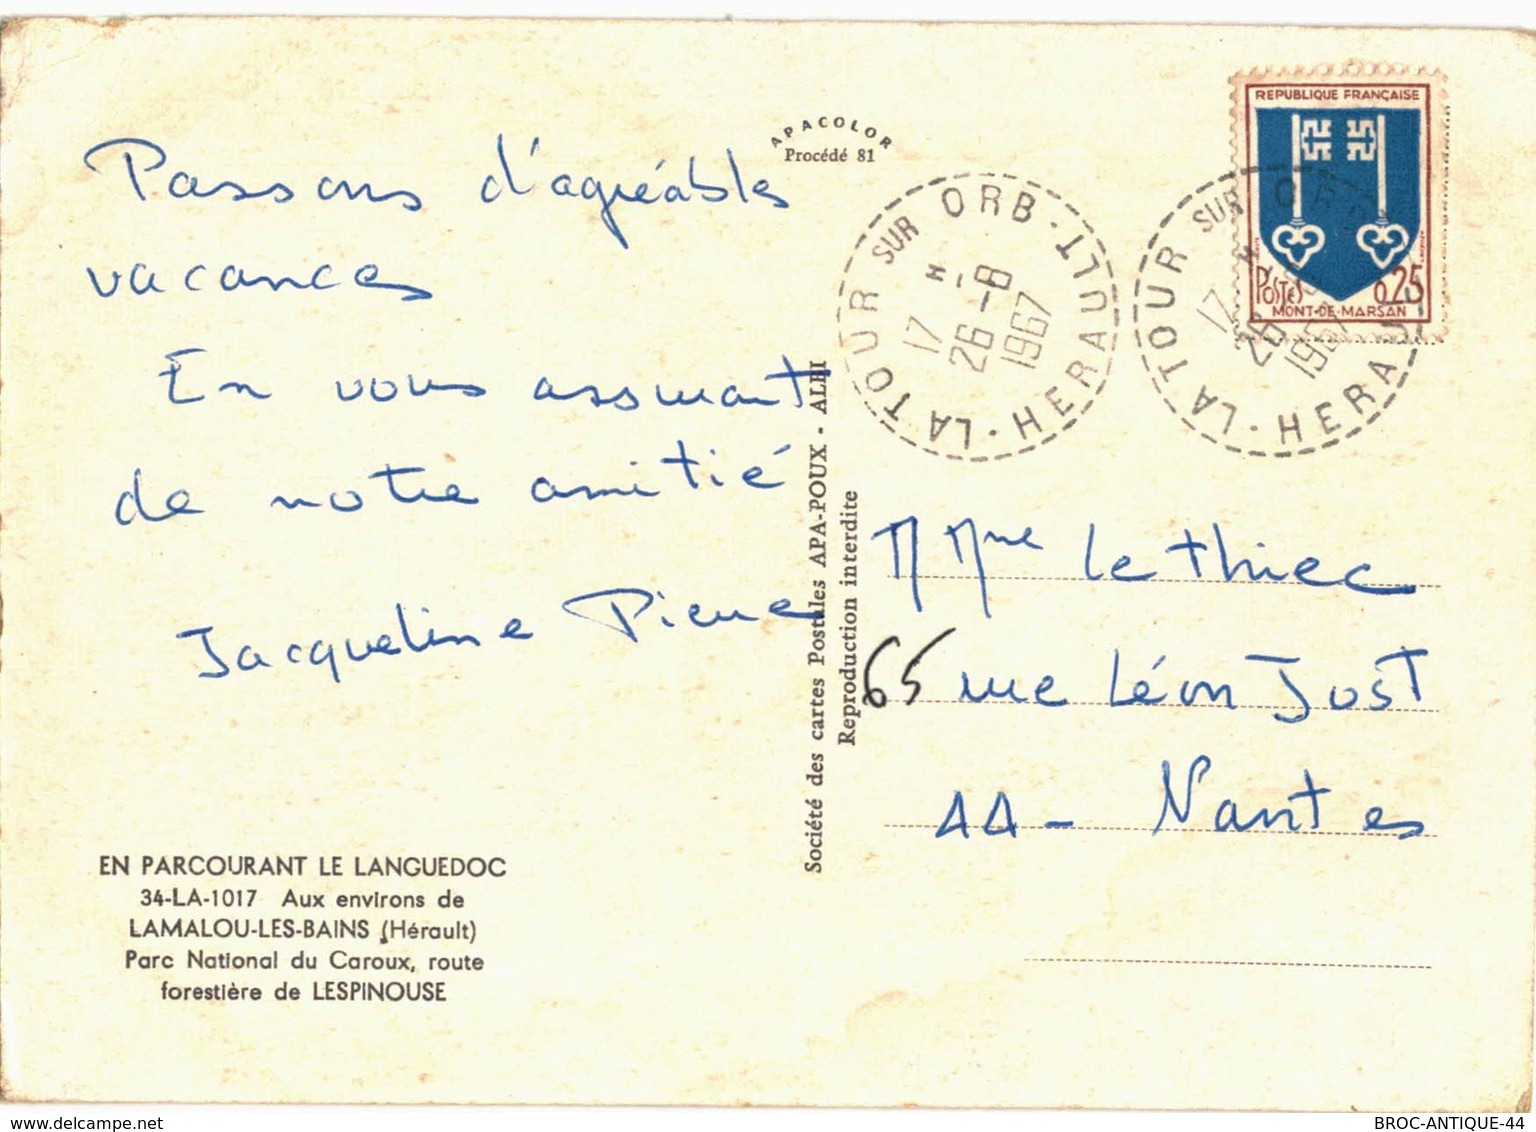 Passons d'agréables
vacances
En vous assurant
de notre amitié
Jacqueline Pierre
EN PARCOURANT LE LANGUEDOC
34-LA-1017 Aux environs de
LAMALOU-LES-BAINS (Hérault)
Parc National du Caroux, route
forestière de LESPINOUSE
APACOLOR
Procédé 81
Société des cartes Postales APA-POUX - ALBI
Reproduction interdite
LA TOUR SUR ORB · HERAULT ·
17 H
26-8
1967
LA TOUR SUR ORB · HERAULT ·
17 H
26-8
1967
REPUBLIQUE FRANÇAISE
POSTES 0,25
MONT-DE-MARSAN
M Mme Le thiec
65 rue Léon Jost
44 - Nantes
BROC-ANTIQUE-44